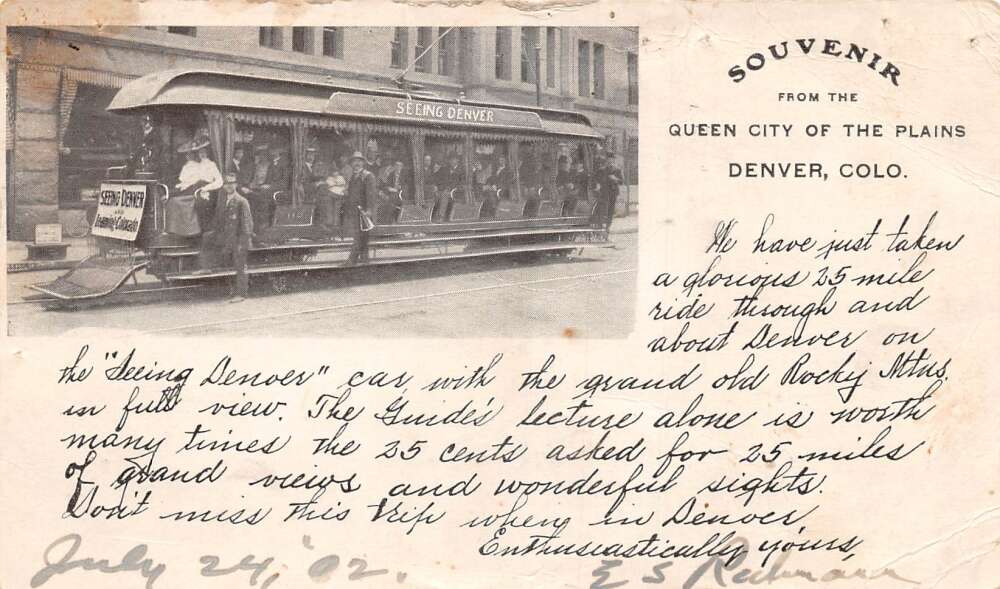 SEEING DENVER
SEEING DENVER
AND
Colorado
SOUVENIR
FROM THE
QUEEN CITY OF THE PLAINS
DENVER, COLO.
We have just taken
a glorious 25 mile
ride through and
about Denver on
the "Seeing Denver" car with the grand old Rocky Mtns.
in full view. The Guide's lecture alone is worth
many times the 25 cents asked for 25 miles
of grand views and wonderful sights.
Don't miss this trip when in Denver,
Enthusiastically yours,
July 24, '02.
E S